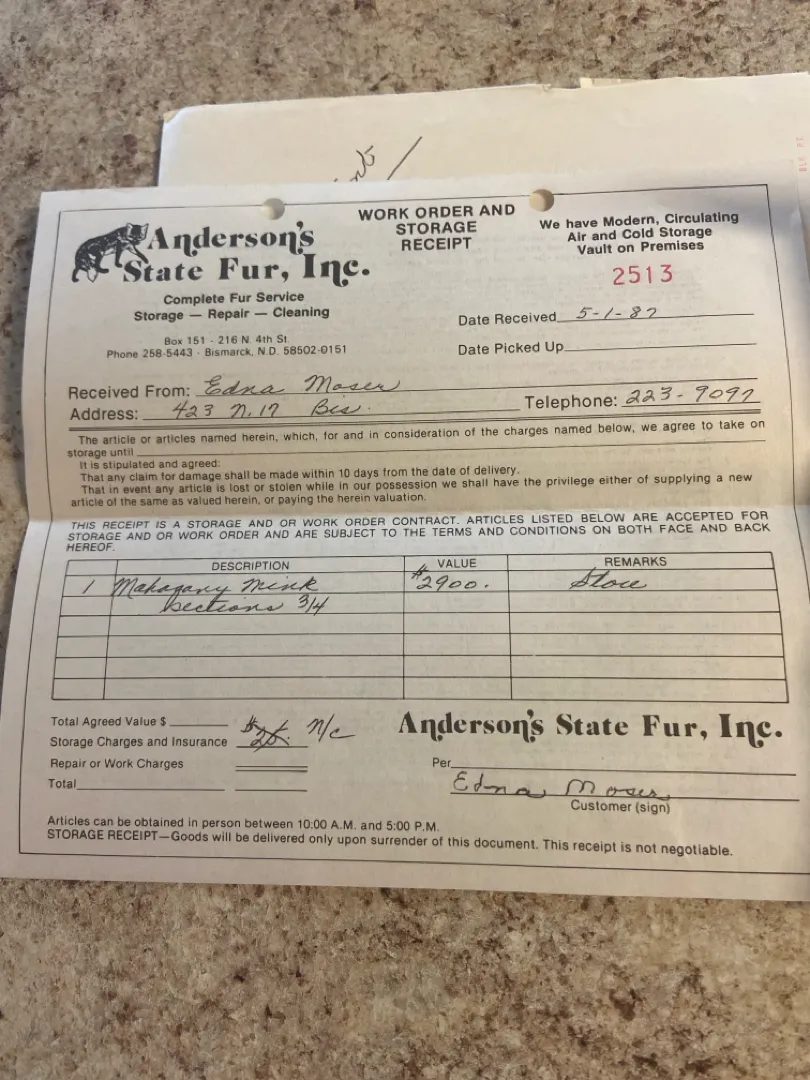 Anderson's
State Fur, Inc.
Complete Fur Service
Storage — Repair — Cleaning
Box 151 - 216 N. 4th St.
Phone 258-5443 - Bismarck, N.D. 58502-0151
WORK ORDER AND
STORAGE
RECEIPT
We have Modern, Circulating
Air and Cold Storage
Vault on Premises
2513
Date Received 5-1-87
Date Picked Up
Received From: Edna Moser
Address: 423 N. 17 Bis.
Telephone: 223-9097
The article or articles named herein, which, for and in consideration of the charges named below, we agree to take on
storage until
It is stipulated and agreed:
That any claim for damage shall be made within 10 days from the date of delivery.
That in event any article is lost or stolen while in our possession we shall have the privilege either of supplying a new
article of the same as valued herein, or paying the herein valuation.
THIS RECEIPT IS A STORAGE AND OR WORK ORDER CONTRACT. ARTICLES LISTED BELOW ARE ACCEPTED FOR
STORAGE AND OR WORK ORDER AND ARE SUBJECT TO THE TERMS AND CONDITIONS ON BOTH FACE AND BACK
HEREOF.
DESCRIPTION VALUE REMARKS
1 Mahagany Mink $2900. Store
Sections 3/4
Total Agreed Value $
Storage Charges and Insurance $25. N/C
Repair or Work Charges
Total
Anderson's State Fur, Inc.
Per
Edna Moser
Customer (sign)
Articles can be obtained in person between 10:00 A.M. and 5:00 P.M.
STORAGE RECEIPT—Goods will be delivered only upon surrender of this document. This receipt is not negotiable.